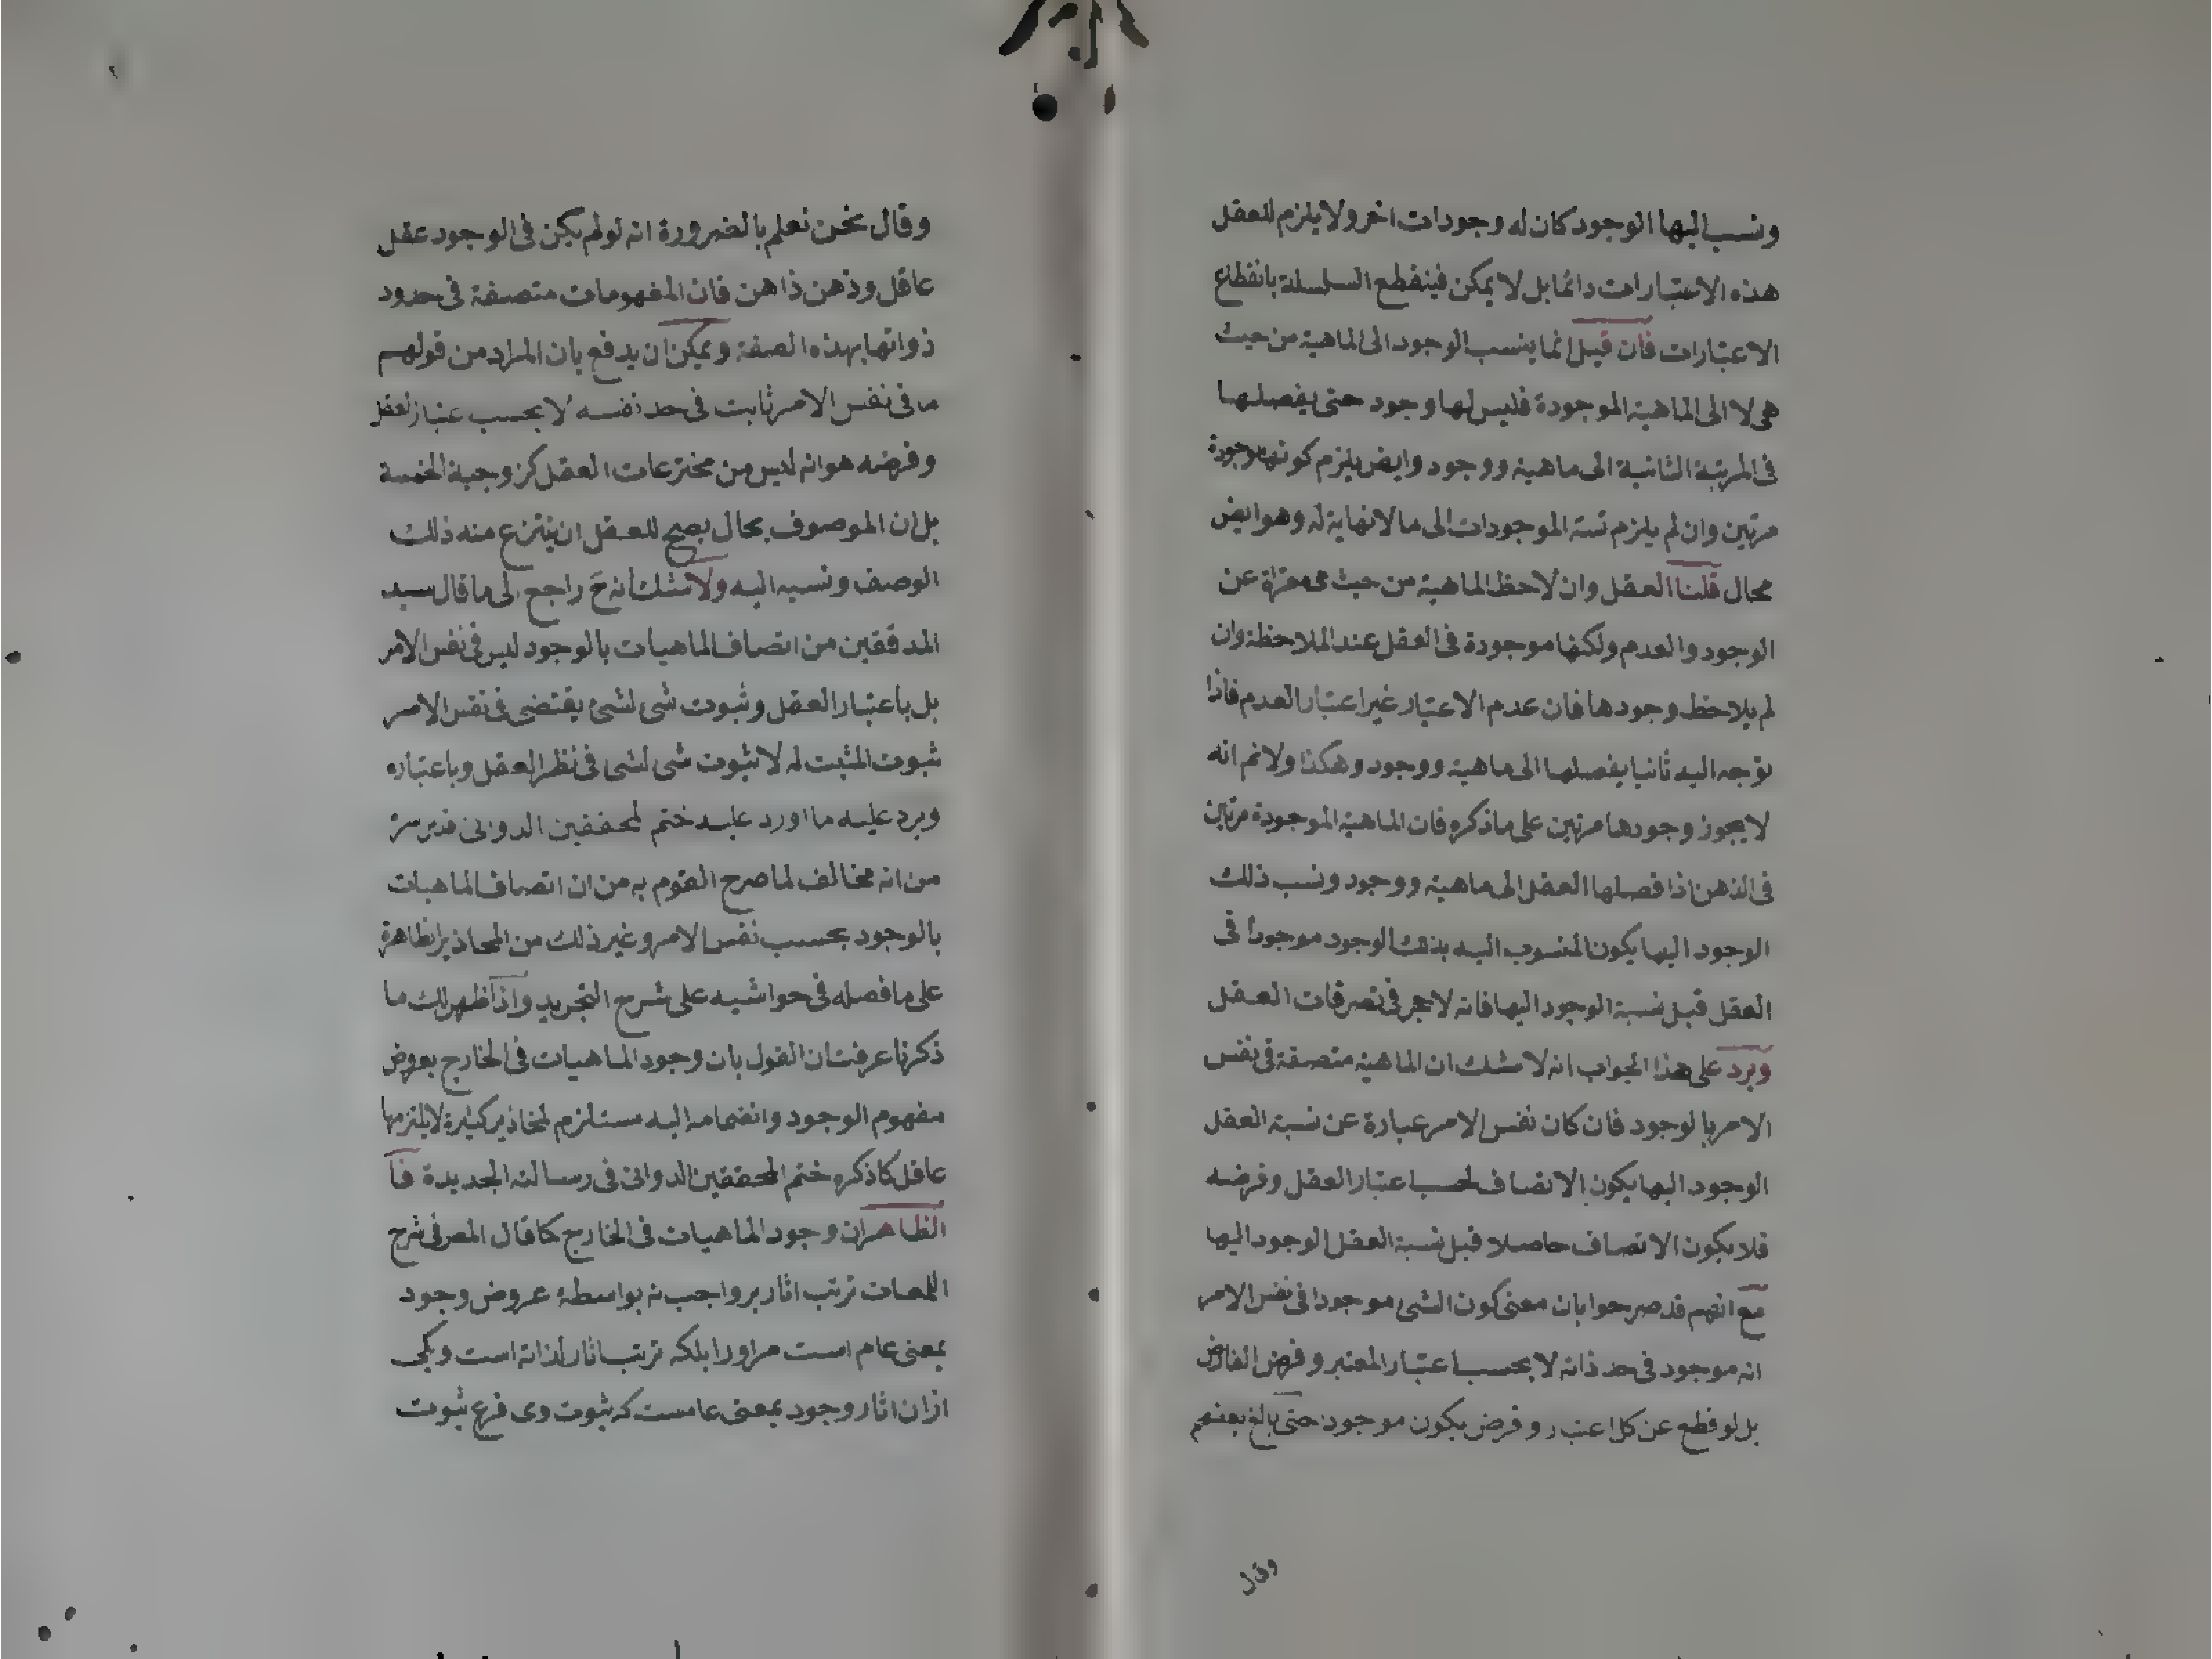 ونسب اليها الوجود كان له وجودات اخر ولا يلزم للعقل
هذه الاعتبارات دائما بل لا يمكن فينقطع السلسلة بانقطاع
الاعتبارات فان قيل انما ينسب الوجود الى الماهية من حيث
هى لا الى الماهية الموجودة فليس لها وجود حتى يفصلها
فى المرتبة الثانية الى ماهية ووجود وايض يلزم كونها موجودة
مرتين وان لم يلزم الموجودات الى ما لا نهاية له وهو ايض
محال قلنا العقل وان لاحظ الماهية من حيث هى معراة عن
الوجود والعدم ولكنها موجودة فى العقل عند الملاحظة وان
لم يلاحظ وجودها فان عدم الاعتبار غير اعتبار العدم فاذا
توجه اليه ثانيا يفصلها الى ماهية ووجود وهكذا ولانم انه
لا يجوز وجودها مرتين على ما ذكره فان الماهية الموجودة مرتين
فى الذهن اذا فصلها العقل الى ماهية ووجود ونسب ذلك
الوجود اليها يكون المنسوب اليه بذلك الوجود موجودا فى
العقل قبل نسبة الوجود اليها فانه لا حجر فى تصرفات العقل
ويرد على هذا الجواب انه لا شك ان الماهية متصفة فى نفس
الامر بالوجود فان كان نفس الامر عبارة عن نسبة العقل
الوجود اليها يكون الاتصاف بحسب اعتبار العقل وفرضه
فلا يكون الاتصاف حاصلا قبل نسبة العقل الوجود اليها
مع انهم قد صرحوا بان معنى كون الشئ موجودا فى نفس الامر
انه موجود فى حد ذاته لا بحسب اعتبار المعتبر وفرض الفارض
بل لو قطع عن كل اعتبار وفرض يكون موجودا حتى بالغ بعضهم
وقال
وقال نحن نعلم بالضرورة انه لو لم يكن فى الوجود عقل
عاقل وذهن ذاهن فان المفهومات متصفة فى حدود
ذواتها بهذه الصفة ويمكن ان يدفع بان المراد من قولهم
ما فى نفس الامر ثابت فى حد نفسه لا بحسب اعتبار العقل
وفرضه هو انه ليس من مخترعات العقل كزوجية الخمسة
بل ان الموصوف بحال يصح للعقل ان ينتزع منه ذلك
الوصف ونسبه اليه ولا شك انه ح راجع الى ما قال سيد
المدققين من اتصاف الماهيات بالوجود ليس فى نفس الامر
بل باعتبار العقل وثبوت شى لشئ يقتضى فى نفس الامر
ثبوت المثبت له لا ثبوت شى لشى فى نظر العقل وباعتباره
ويرد عليه ما اورد عليه ختم المحققين الدوانى قدس سره
من انه مخالف لما صرح القوم به من ان اتصاف الماهيات
بالوجود بحسب نفس الامر وغير ذلك من المحاذير الظاهرة
على ما فصله فى حواشيه على شرح التجريد واذا ظهر لك ما
ذكرنا عرفت ان القول بان وجود الماهيات فى الخارج بعروض
مفهوم الوجود وانضمامه اليه مستلزم لمحاذير كثيرة لا يلتزمها
عاقل كما ذكره ختم المحققين الدوانى فى رسالته الجديدة فا
الظاهر ان وجود الماهيات فى الخارج كما قال المص فى شرح
اللمعات ترتب اثار بر واجب نه بواسطه عروض وجود
بمعنى عام است مر اورا بلكه ترتب اثار لذاته است ويكى
از ان اثار وجود بمعنى عامست كه ثبوت وى فرع ثبوت